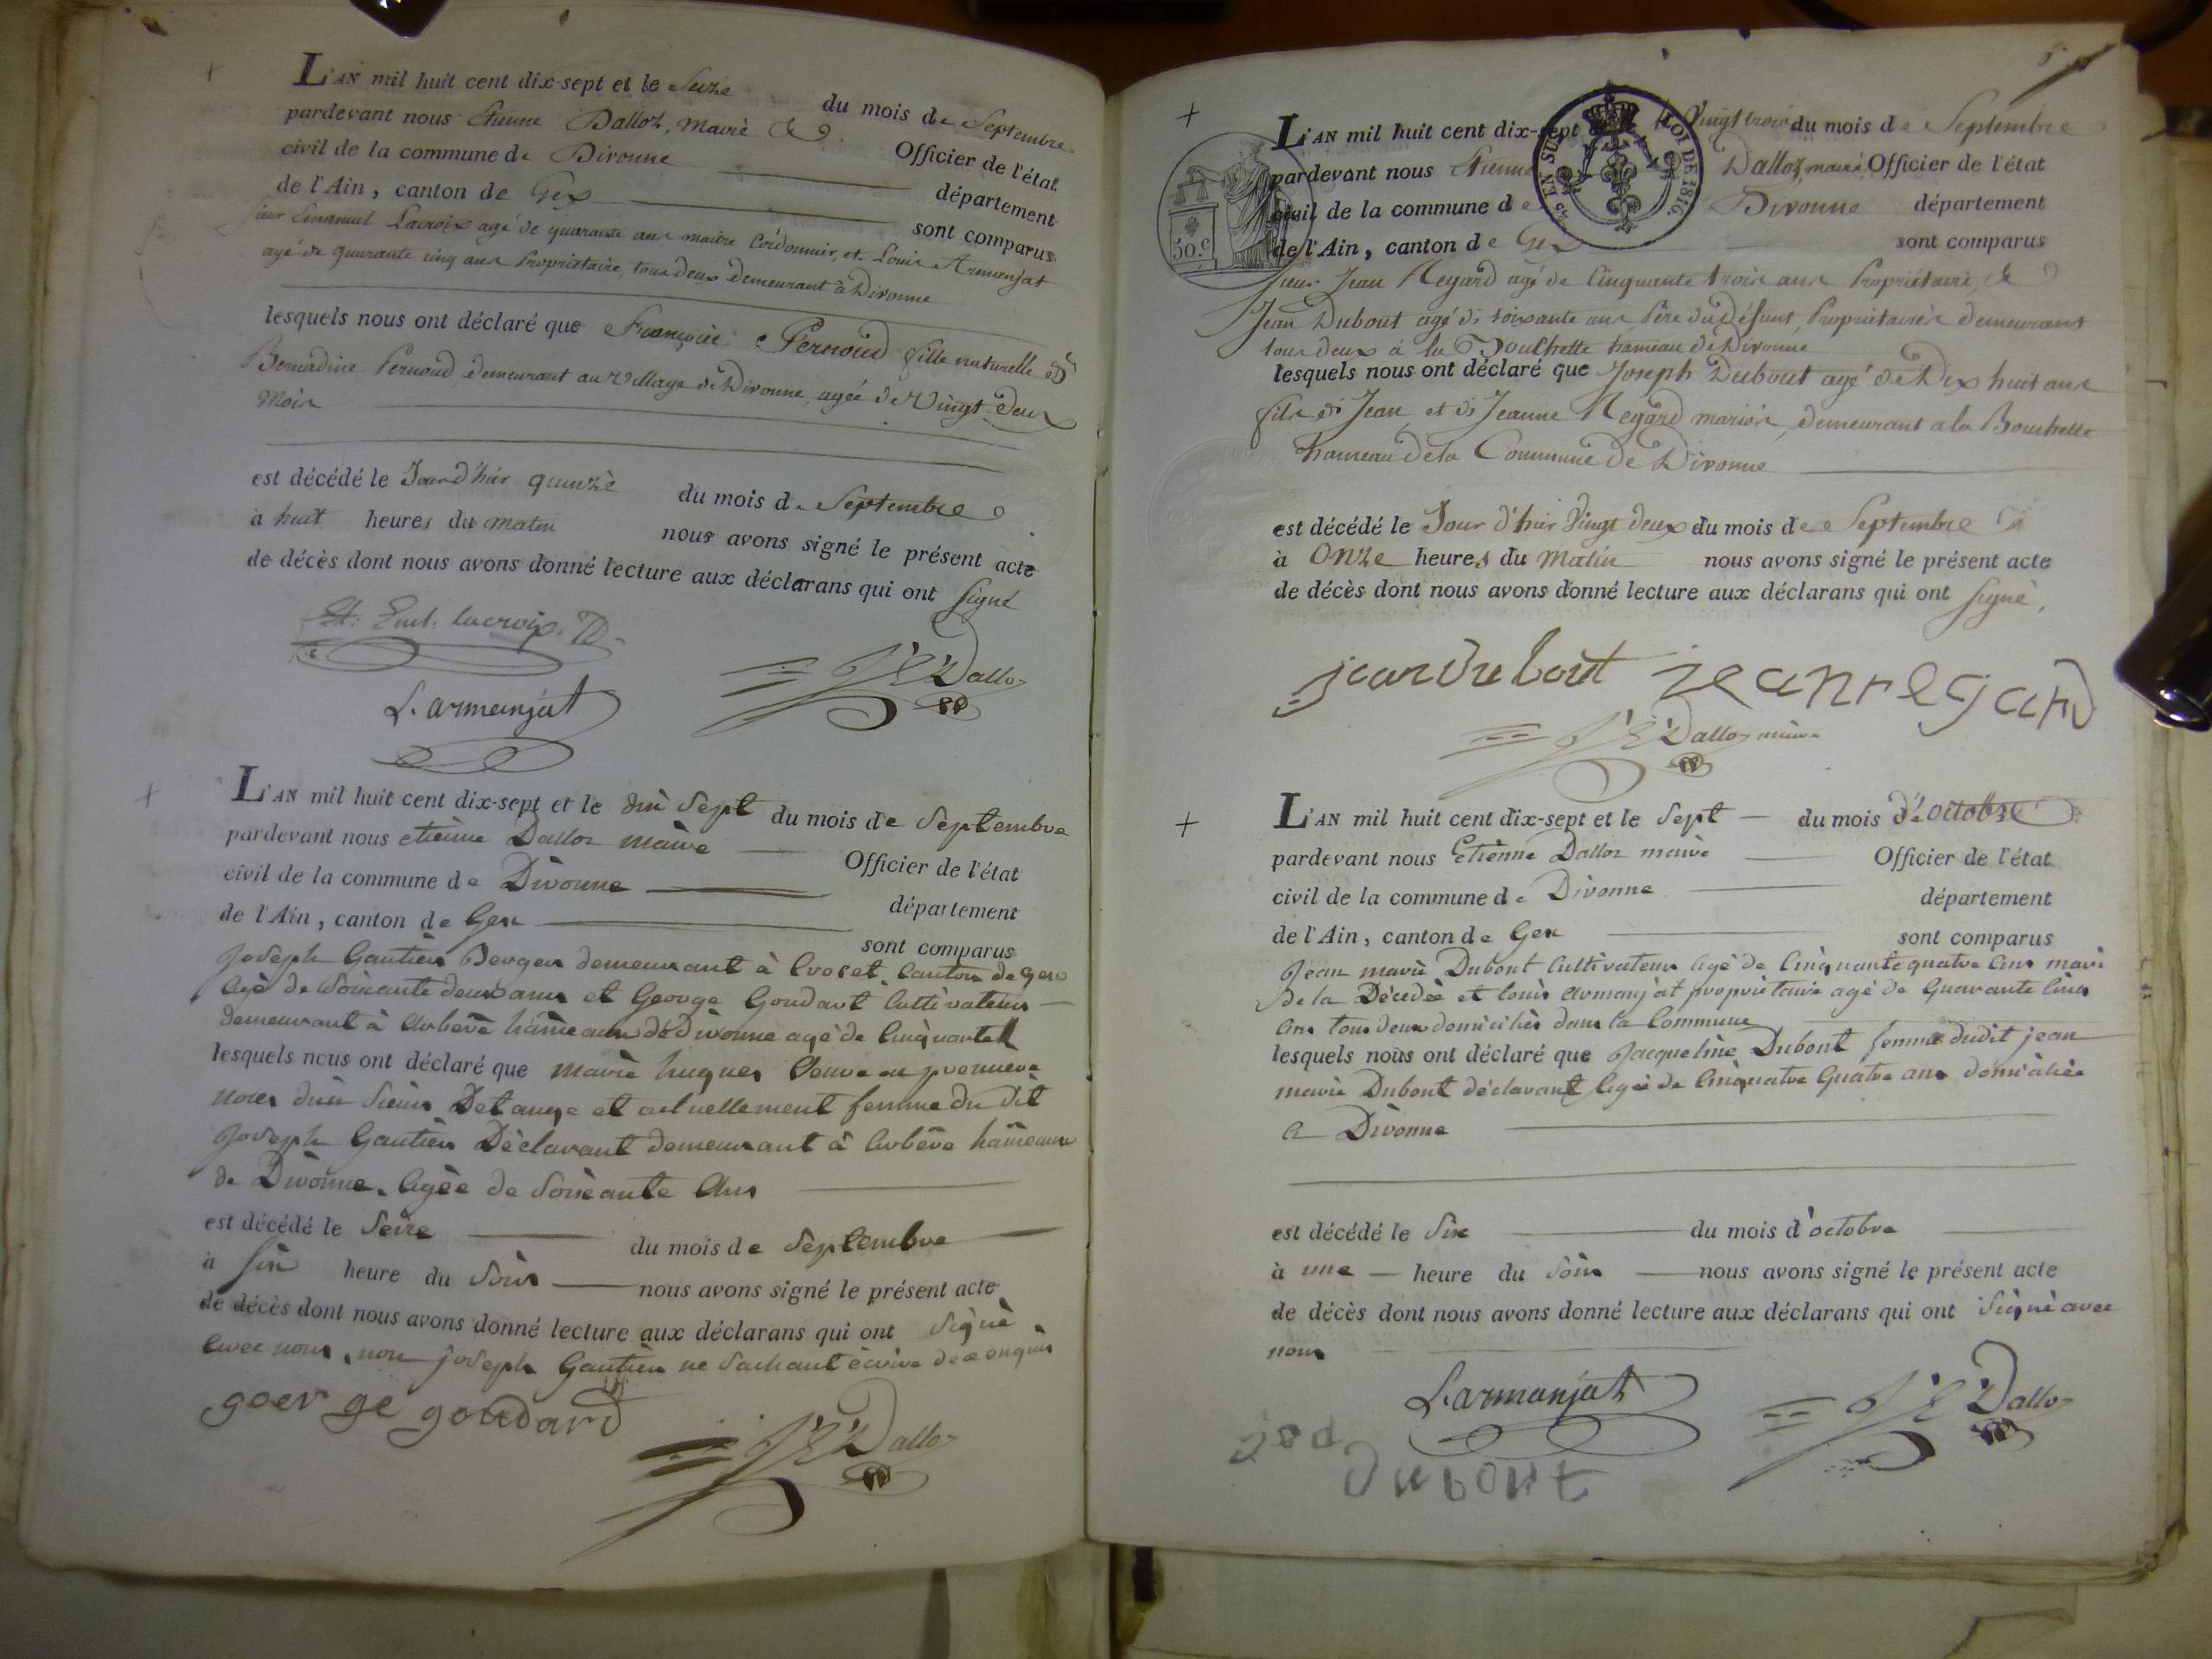 L'AN mil huit cent dix-sept et le Seize du mois de Septembre
pardevant nous Etienne Dalloz, Maire &
Officier de l'état
civil de la commune de Divonne
département
de l'Ain, canton de Gex
sont comparus
Sieur Emanuel Lacroix agé de quarante ans maitre Cordonnier, et Louis Armanjat
agé de quarante cinq ans Propriétaire, tous deux demeurant à Divonne
lesquels nous ont déclaré que Françoise Pernoud fille naturelle de
Bernadine Pernoud, demeurant au Village de Divonne, agée de Vingt deux
Mois
est décédé le Jour d'hier quinze du mois de Septembre
à huit heures du matin nous avons signé le présent acte
de décès dont nous avons donné lecture aux déclarans qui ont signé
Eml. lacroix
J E Dalloz
L. armanjat
L'AN mil huit cent dix-sept et le dix Sept du mois de Septembre
pardevant nous etienne Dalloz maire Officier de l'état
civil de la commune de Divonne
département
de l'Ain, canton de Gex
sont comparus
Joseph Gautier Berger demeurant à Crozet canton de gex
agé de Soixante deux ans et George Goudart Cultivateur
demeurant à Arbère hameau de Divonne agé de Cinquante
lesquels nous ont déclaré que marie hugues Veuve en premiere
noces du Sieur Detange et actuellement femme du dit
Joseph Gautier Déclarant demeurant à Arbère hameau
de Divonne. Agée de Soixante Ans
est décédé le Seize du mois de Septembre
à Six heure du Soir nous avons signé le présent acte
de décès dont nous avons donné lecture aux déclarans qui ont Signé
avec nous, non joseph Gautier ne Sachant écrire de ce enquis
goerge goudard
J E Dalloz
L'AN mil huit cent dix-sept et le Vingt trois du mois de Septembre
pardevant nous Etienne Dalloz, maire Officier de l'état
civil de la commune de Divonne département
de l'Ain, canton de Gex sont comparus
EN SUS LOI DE 1816.
50.c
Sieur Jean Regard agé de Cinquante trois ans Propriétaire, &
Jean Dubout agé de soixante ans Père du défunt, Propriétaires demeurant
tous deux à la Bouchette hameau de Divonne
lesquels nous ont déclaré que Joseph Dubout agé de Dix huit ans
fils de Jean, et de Jeanne Regard mariés, demeurant à la Bouchette
hameau de la Commune de Divonne
est décédé le Jour d'hier Vingt deux du mois de Septembre
à Onze heures du Matin nous avons signé le présent acte
de décès dont nous avons donné lecture aux déclarans qui ont signé,
jean du bout jean regard
J E Dalloz maire
L'AN mil huit cent dix-sept et le Sept du mois d'octobre
pardevant nous Etienne Dalloz maire Officier de l'état
civil de la commune de Divonne département
de l'Ain, canton de Gex sont comparus
Jean marie Dubont Cultivateur agé de Cinquante quatre ans mari
De la Décedée et louis armanjat propriétaire agé de Quarante Cinq
ans tous deux domiciliés dans la Commune
lesquels nous ont déclaré que Jacqueline Dubont femme dudit jean
marie Dubont déclarant Agée de Cinquatre Quatre ans domiciliée
a Divonne
est décédé le Six du mois d'octobre
à une heure du Soir nous avons signé le présent acte
de décès dont nous avons donné lecture aux déclarans qui ont Signé avec
nous
L. armanjat
J E Dalloz
Dubont